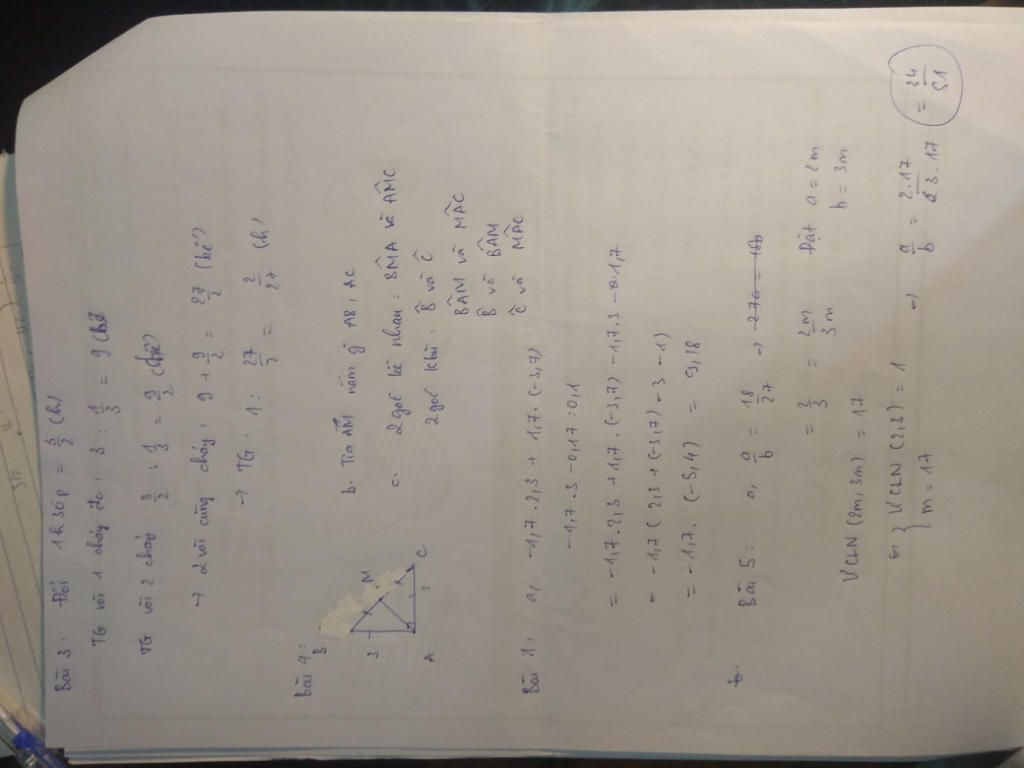 Bài 3: Đổi 1h30p = 3/2 (h)
TG vòi 1 chảy đc: 3 : 1/3 = 9 (bể)
TG vòi 2 chảy: 3/2 : 1/3 = 9/2 (bể)
→ 2 vòi cùng chảy: 9 + 9/2 = 27/2 (bể)
→ TG: 1 : 27/2 = 2/27 (h)
Bài 4:
B
3
M
A
C
b. Tia AM nằm giữa AB, AC
c. 2 góc kề nhau: BM̂A và AM̂C
2 góc khi: B̂ và Ĉ
BÂM và MÂC
B̂ và BÂM
Ĉ và MÂC
Bài 1: a, -1,7 . 2,3 + 1,7 . (-3,7)
-1,7 . 3 - 0,17 : 0,1
= -1,7 . 2,3 + 1,7 . (-3,7) - 1,7 . 3 - 0,1,7
= -1,7 ( 2,3 + (-3,7) - 3 - 1)
= -1,7 . (-5,4) = 9,18
b
Bài 5: a, a/b = 18/27 → -27a = 18b
= 2/3 = 2m/3m Đặt a = 2m
b = 3m
ƯCLN (2m, 3m) = 17
ƯCLN (2,3) = 1
m = 17
→ a/b = 2.17/3.17 = 34/51